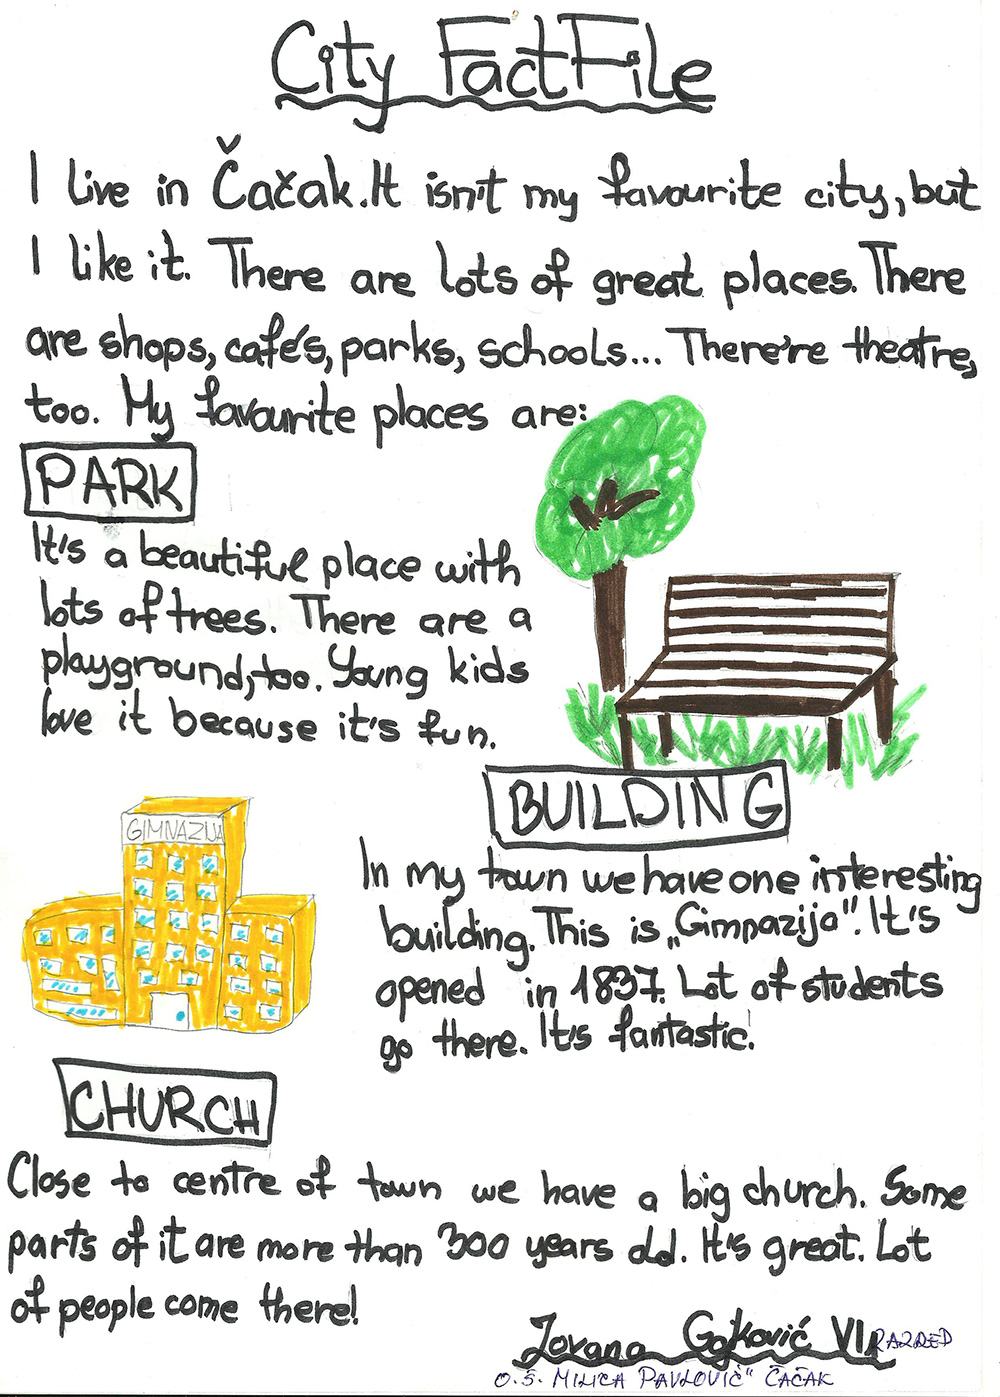 City FactFile
I live in Čačak. It isn't my favourite city, but
I like it. There are lots of great places. There
are shops, cafés, parks, schools... There're theatre,
too. My favourite places are:
PARK
It's a beautiful place with
lots of trees. There are a
playground, too. Young kids
love it because it's fun.
BUILDING
GIMNAZIJA
In my town we have one interesting
building. This is „Gimnazija". It's
opened in 1837. Lot of students
go there. It's fantastic!
CHURCH
Close to centre of town we have a big church. Some
parts of it are more than 300 years old. It's great. Lot
of people come there!
Jovana Gojković VI1 RAZRED
O.Š. MILICA PAVLOVIĆ" ČAČAK